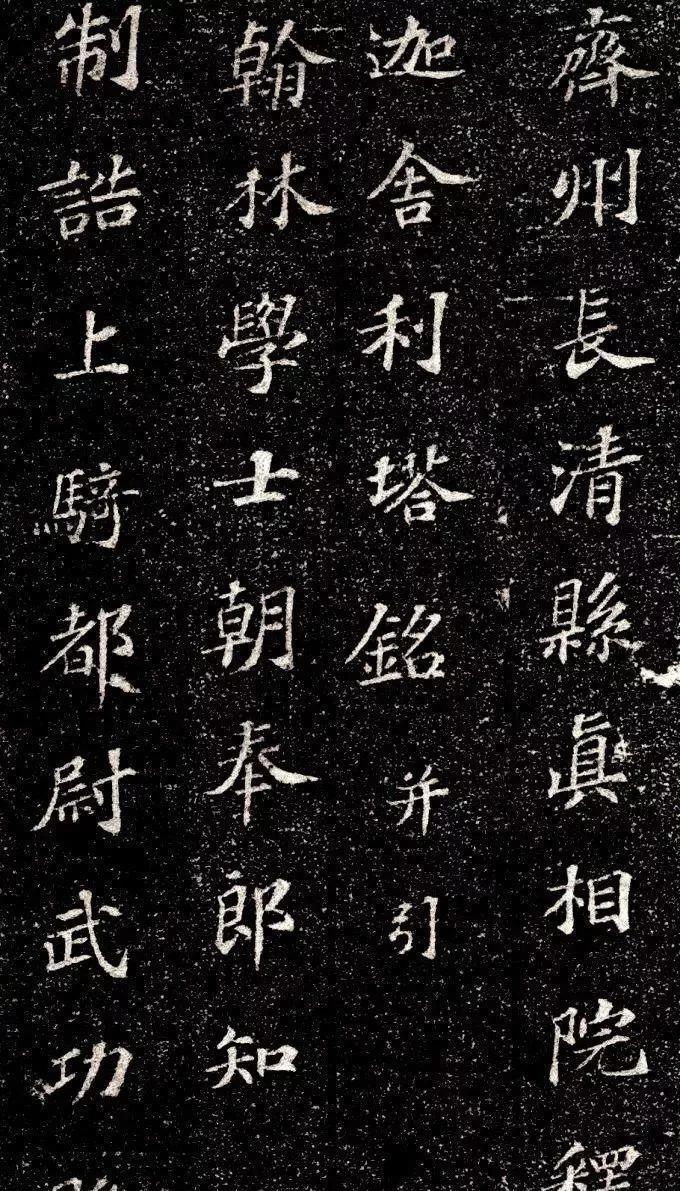 齊州長清縣眞相院釋
迦舍利塔銘并引
翰林學士朝奉郎知
制誥上騎都尉武功